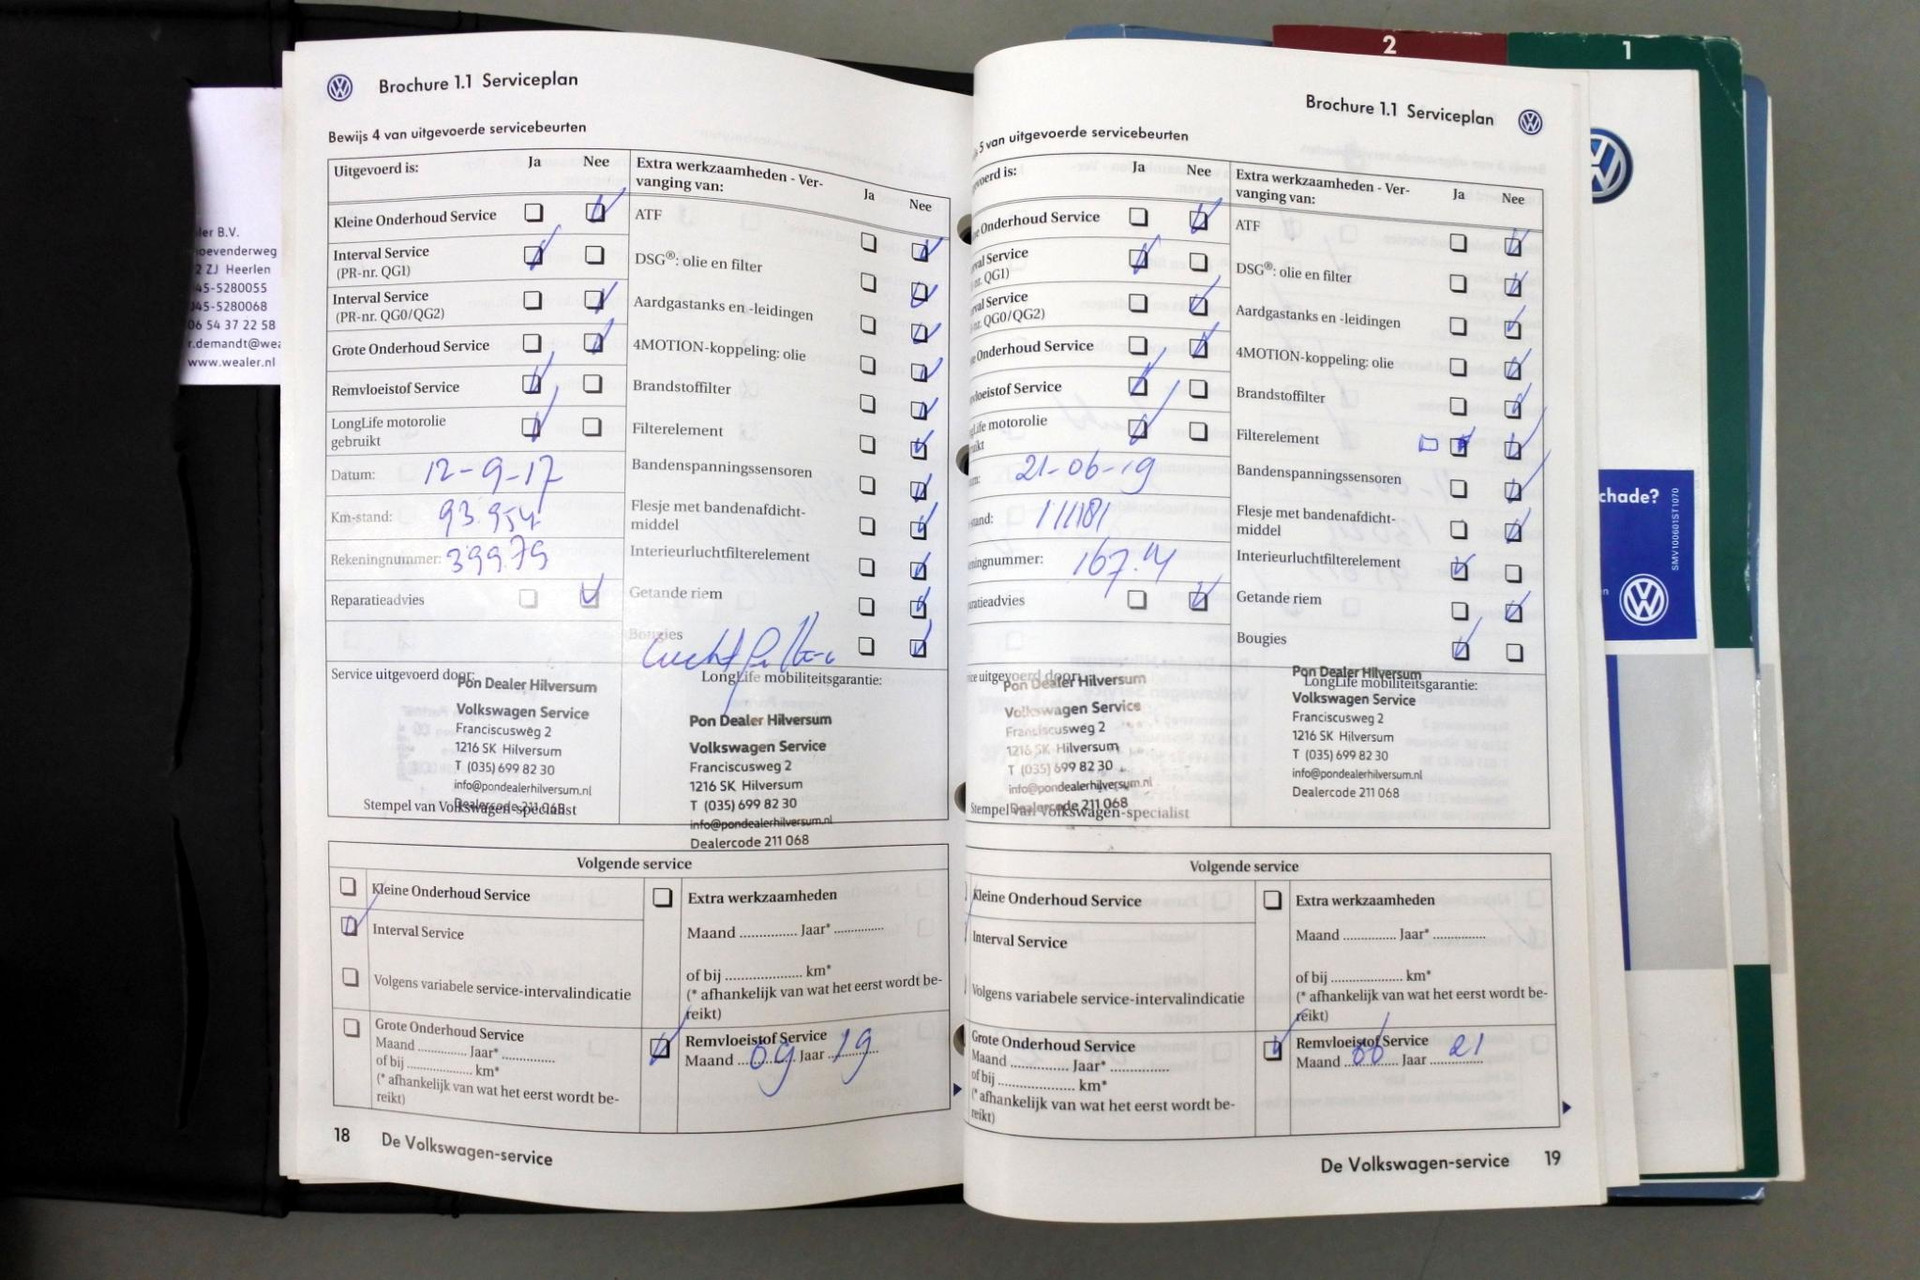 2
1
ler B.V.
oevenderweg
2 ZJ Heerlen
045-5280055
045-5280068
06 54 37 22 58
r.demandt@wea
www.wealer.nl
Brochure 1.1 Serviceplan
Bewijs 4 van uitgevoerde servicebeurten
Uitgevoerd is:
Ja
Nee
Kleine Onderhoud Service
Interval Service
(PR-nr. QG1)
Interval Service
(PR-nr. QG0/QG2)
Grote Onderhoud Service
Remvloeistof Service
LongLife motorolie
gebruikt
Datum: 12-9-17
Km-stand: 93.954
Rekeningnummer: 39979
Reparatieadvies
Extra werkzaamheden - Ver-
vanging van:
Ja
Nee
ATF
DSG®: olie en filter
Aardgastanks en -leidingen
4MOTION-koppeling: olie
Brandstoffilter
Filterelement
Bandenspanningssensoren
Flesje met bandenafdicht-
middel
Interieurluchtfilterelement
Getande riem
Bougies
Service uitgevoerd door:
Pon Dealer Hilversum
Volkswagen Service
Franciscusweg 2
1216 SK Hilversum
T (035) 699 82 30
info@pondealerhilversum.nl
Dealercode 211 068
Stempel van Volkswagen-specialist
LongLife mobiliteitsgarantie:
Pon Dealer Hilversum
Volkswagen Service
Franciscusweg 2
1216 SK Hilversum
T (035) 699 82 30
info@pondealerhilversum.nl
Dealercode 211 068
Volgende service
Kleine Onderhoud Service
Interval Service
Volgens variabele service-intervalindicatie
Grote Onderhoud Service
Maand ............ Jaar* ............
of bij ............ km*
(* afhankelijk van wat het eerst wordt be-
reikt)
Extra werkzaamheden
Maand ............ Jaar* ............
of bij ............ km*
(* afhankelijk van wat het eerst wordt be-
reikt)
Remvloeistof Service
Maand 09 Jaar 19
18 De Volkswagen-service
Brochure 1.1 Serviceplan
5 van uitgevoerde servicebeurten
gevoerd is:
Ja
Nee
ne Onderhoud Service
rval Service
nr. QG1)
rval Service
nr. QG0/QG2)
e Onderhoud Service
vloeistof Service
gLife motorolie
ruikt
um: 21-06-19
stand: 111181
eningnummer:
aratieadvies
Extra werkzaamheden - Ver-
vanging van:
Ja
Nee
ATF
DSG®: olie en filter
Aardgastanks en -leidingen
4MOTION-koppeling: olie
Brandstoffilter
Filterelement
Bandenspanningssensoren
Flesje met bandenafdicht-
middel
Interieurluchtfilterelement
Getande riem
Bougies
ice uitgevoerd door:
Pon Dealer Hilversum
Volkswagen Service
Franciscusweg 2
1216 SK Hilversum
T (035) 699 82 30
info@pondealerhilversum.nl
Dealercode 211 068
Stempel van Volkswagen-specialist
LongLife mobiliteitsgarantie:
Pon Dealer Hilversum
Volkswagen Service
Franciscusweg 2
1216 SK Hilversum
T (035) 699 82 30
info@pondealerhilversum.nl
Dealercode 211 068
Volgende service
Kleine Onderhoud Service
Interval Service
Volgens variabele service-intervalindicatie
Grote Onderhoud Service
Maand ............ Jaar* ............
of bij ............ km*
(* afhankelijk van wat het eerst wordt be-
reikt)
Extra werkzaamheden
Maand ............ Jaar* ............
of bij ............ km*
(* afhankelijk van wat het eerst wordt be-
reikt)
Remvloeistof Service
Maand 06 Jaar 21
De Volkswagen-service 19
chade?
5MV100601ST1070